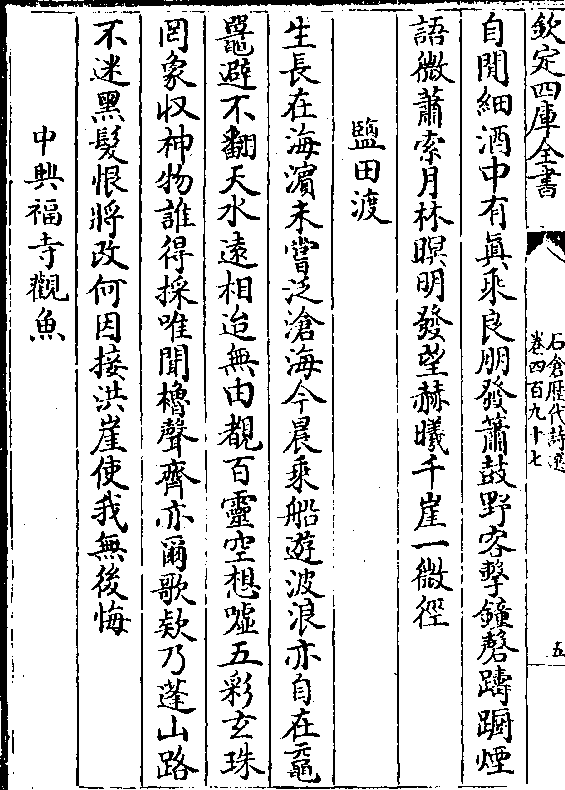 欽定四庫全書
石倉歷代詩選
卷四百九十七
五
自閒細酒中有眞乘良朋發簫鼓野客擊鐘磬躊蹰煙
語微蕭索月林暝明發望赫曦千崖一微徑
鹽田渡
生長在海濵未嘗泛滄海今晨乘船遊波浪亦自在黿
鼉避不翻天水遠相迨無由覩百靈空想噓五彩玄珠
罔象収神物誰得採唯聞櫓聲齊亦爾歌欸乃蓬山路
不迷黑髮恨將改何因接洪崖使我無後悔
中興福寺觀魚